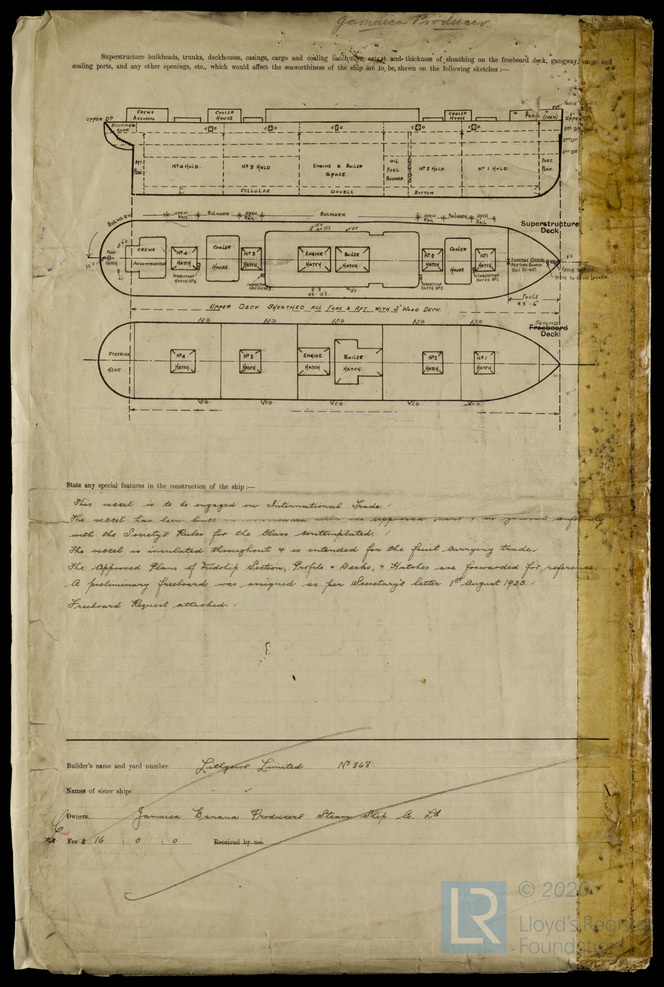 Jamaica Producer
Superstructure bulkheads, trunks, deckhouses, casings, cargo and coaling hatchways, extent and thickness of sheathing on the freeboard deck, gangway, cargo and
coaling ports, and any other openings, etc., which would affect the seaworthiness of the ship are to be shown on the following sketches:—
CREWS ACCOMM
COOLER HOUSE
COOLER HOUSE
UPPER DK
STEERING GEAR
AFT PEAK
No 4 HOLD
No 3 HOLD
ENGINE & BOILER SPACE
OIL FUEL BUNKER
No 2 HOLD
No 1 HOLD
FORE PEAK
CELLULAR DOUBLE BOTTOM
BULWARK
OPEN RAIL
BULWARK
OPEN RAIL
BULWARK
OPEN RAIL
BULWARK
OPEN RAIL
Superstructure Deck.
CREWS ACCOMMODATION
No 4 HATCH
COOLER HOUSE
No 3 HATCH
ENGINE HATCH
BOILER HATCH
No 2 HATCH
COOLER HOUSE
No 1 HATCH
FoCLE
UPPER DECK SHEATHED ALL FORE & AFT WITH WOOD DECK.
Second
Freeboard Deck
STEERING GEAR
No 4 HATCH
No 3 HATCH
ENGINE HATCH
BOILER HATCH
No 2 HATCH
No 1 HATCH
State any special features in the construction of the ship:—
This vessel is to be engaged on International Trade.
The vessel has been built in accordance with the approved plans & in general conformity
with the Society's Rules for the Class contemplated.
The vessel is insulated throughout & is intended for the fruit carrying trade.
The Approved Plans of Midship Section, Profile & Decks, & Hatches are forwarded for reference.
A preliminary freeboard was assigned as per Secretary's letter 1st August 1933.
Freeboard Request attached.
Builder's name and yard number Lithgows Limited No 868
Names of sister ships
Owners Jamaica Banana Producers Steam Ship Co. Ld
Fee £ 16 : 0 : 0 Received by me
LR © 2020
Lloyd's Register
Foundation